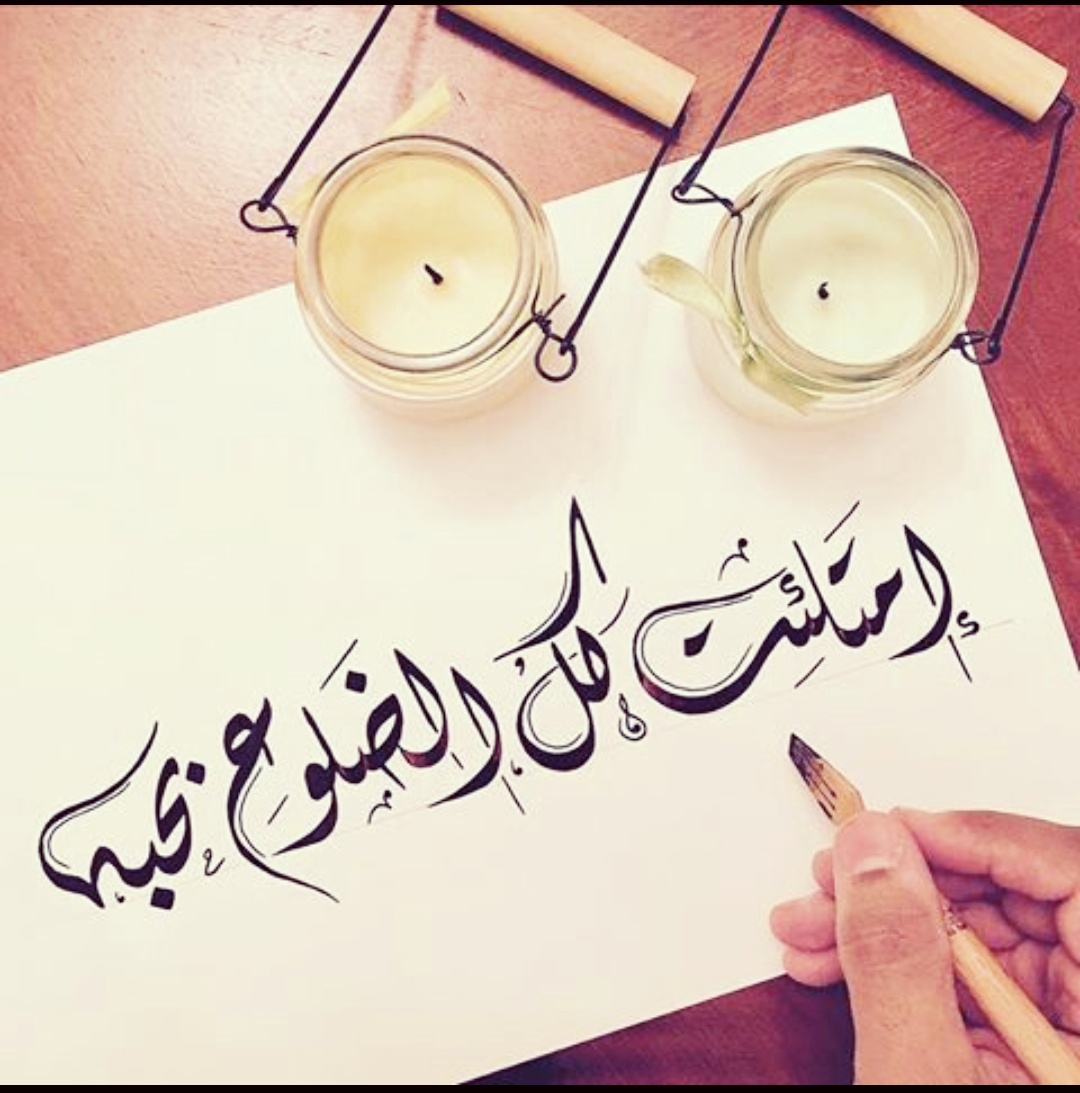 إمتلئت كل الضلوع بحبه